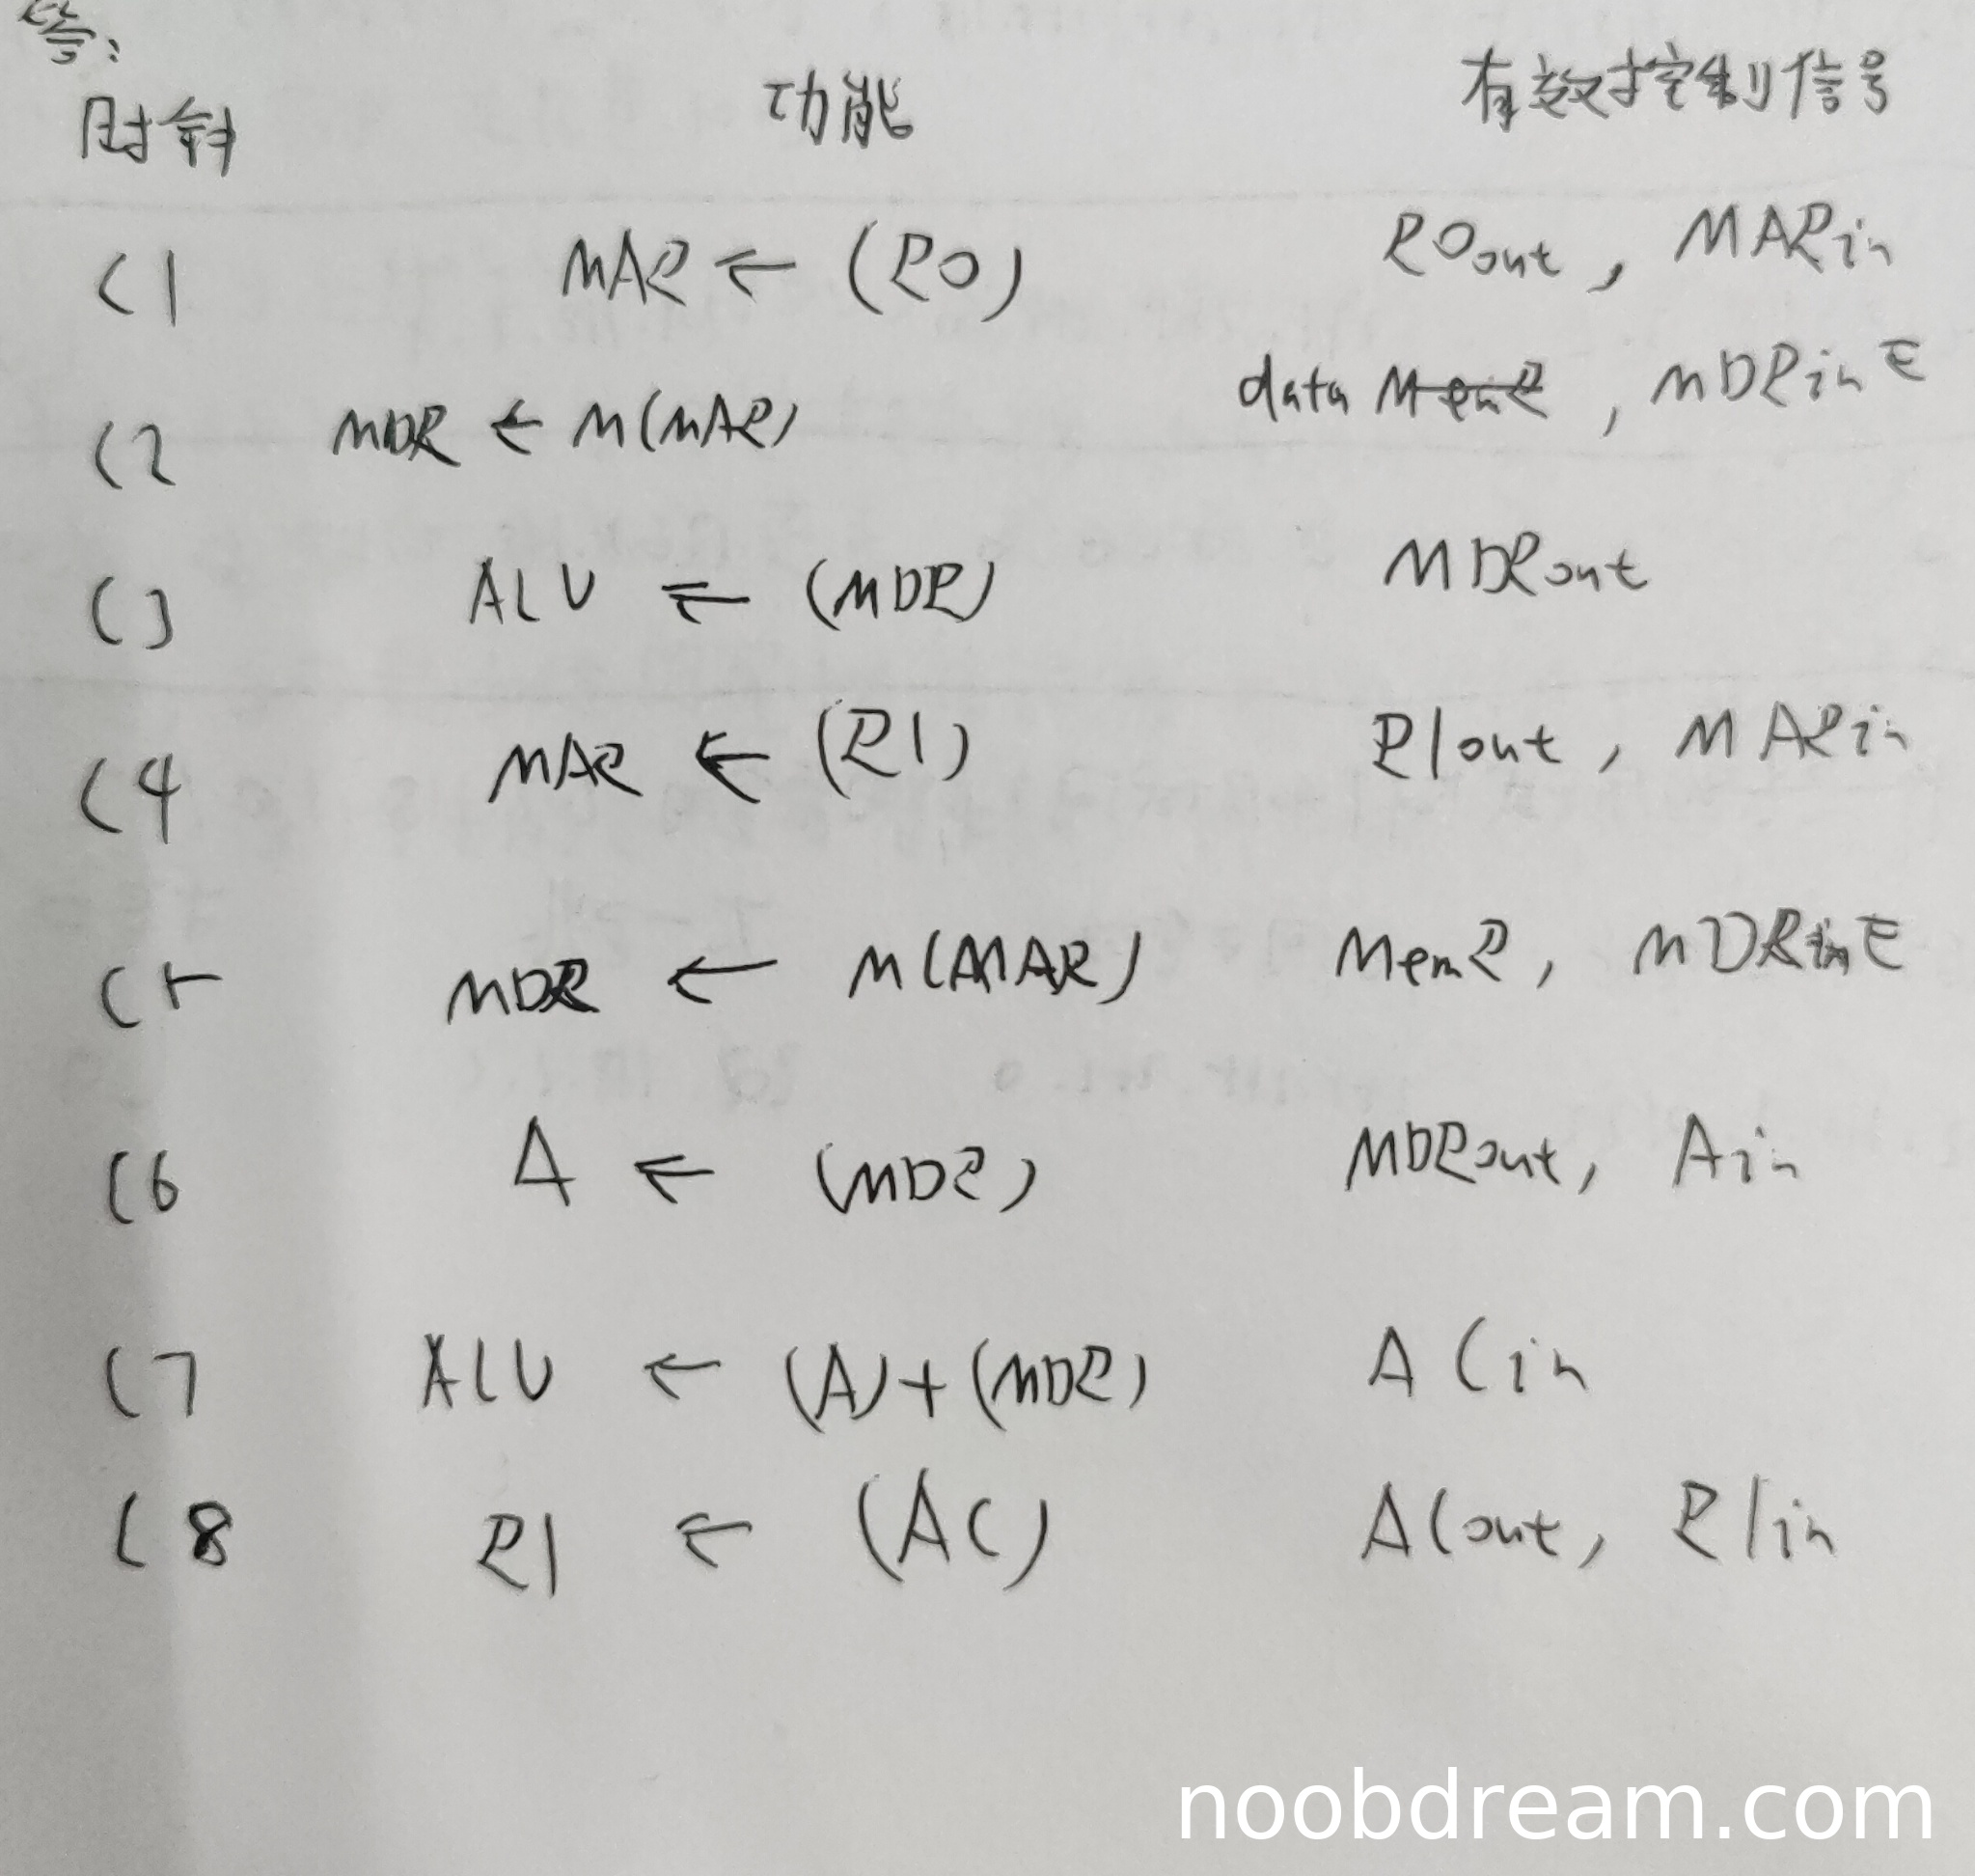 答:
时钟 功能 有效控制信号
C1 MAR ← (R0) R0out , MARin
C2 MDR ← M(MAR) data MemR , MDRinE
C3 ALU ← (MDR) MDRout
C4 MAR ← (R1) R1out , MARin
C5 MDR ← M(MAR) MemR , MDRinE
C6 A ← (MDR) MDRout , Ain
C7 ALU ← (A)+(MDR) ACin
C8 R1 ← (AC) ACout , R1in
noobdream.com